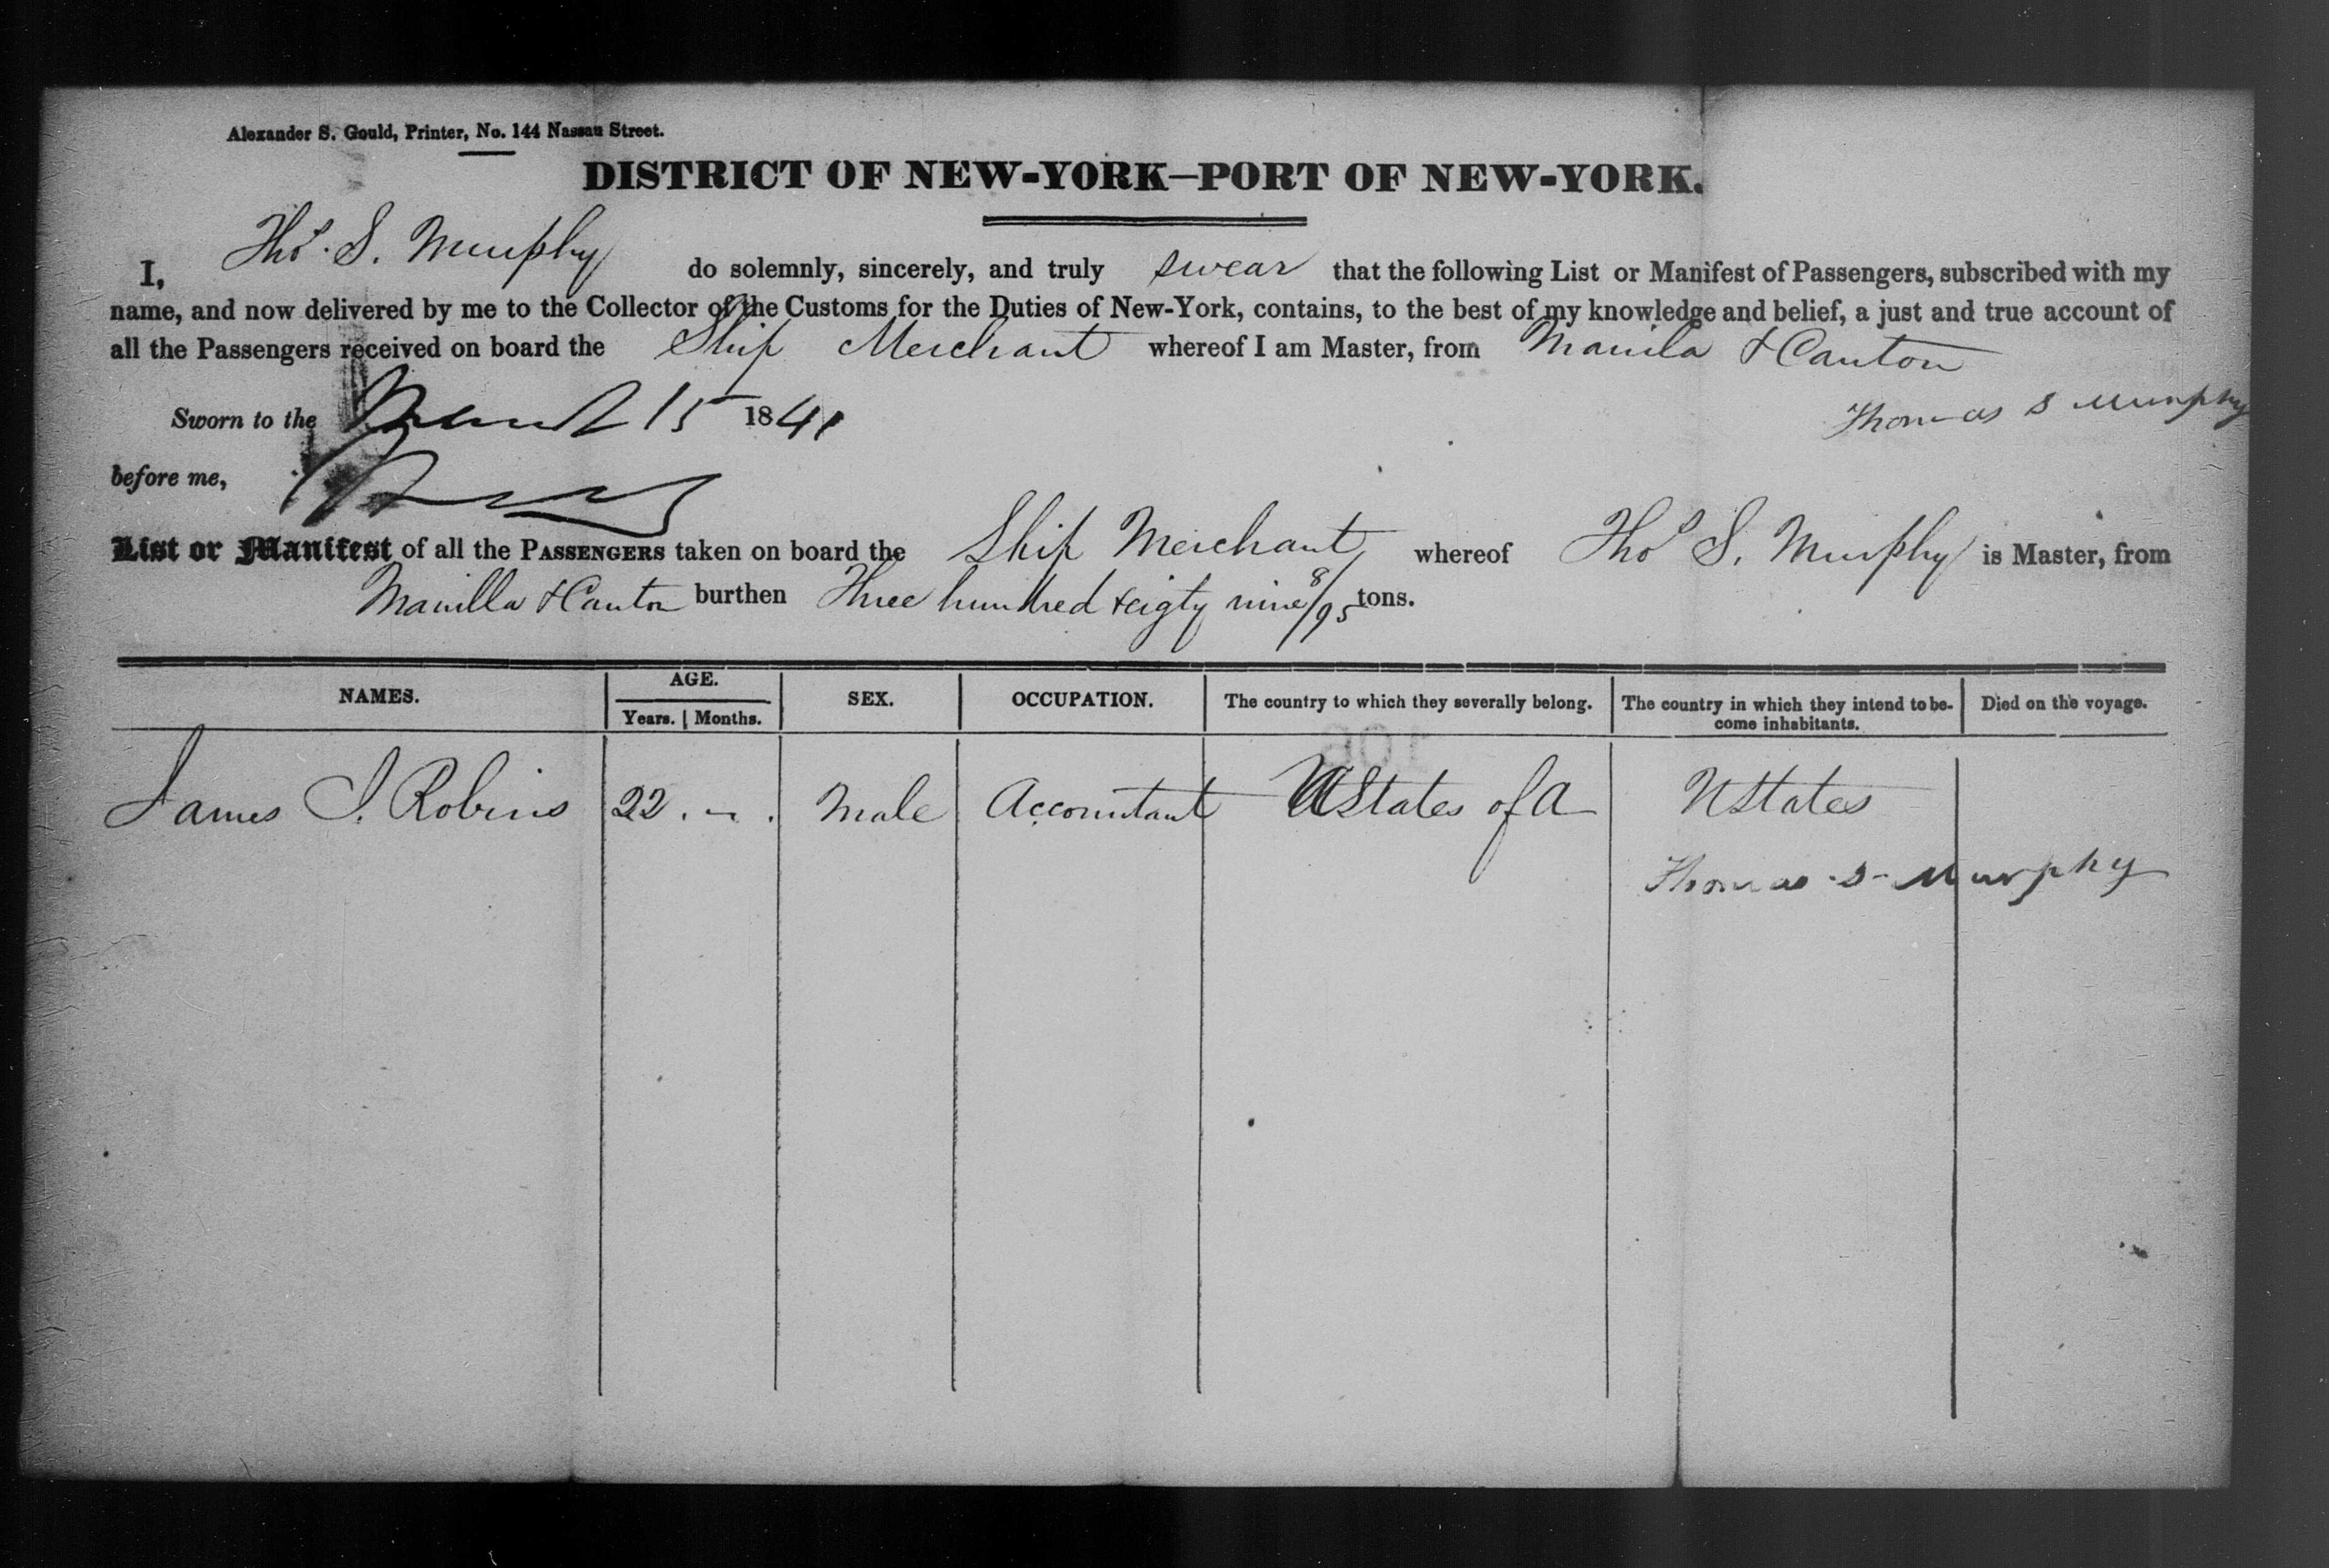 Alexander S. Gould, Printer, No. 144 Nassau Street.
DISTRICT OF NEW-YORK—PORT OF NEW-YORK.
I, Thos. S. Murphy do solemnly, sincerely, and truly swear that the following List or Manifest of Passengers, subscribed with my
name, and now delivered by me to the Collector of the Customs for the Duties of New-York, contains, to the best of my knowledge and belief, a just and true account of
all the Passengers received on board the Ship Merchant whereof I am Master, from Manila & Canton
Sworn to the March 15 1841 Thomas S Murphy
before me,
List or Manifest of all the PASSENGERS taken on board the Ship Merchant, whereof Thos S. Murphy is Master, from
Manilla & Canton burthen Three hundred & eigty nine 8/95 tons.
NAMES. AGE. SEX. OCCUPATION. The country to which they severally belong. The country in which they intend to be- Died on the voyage.
Years. Months. come inhabitants.
James I. Robins 22 . " . Male Accountant UStates of A UStates
Thomas S Murphy